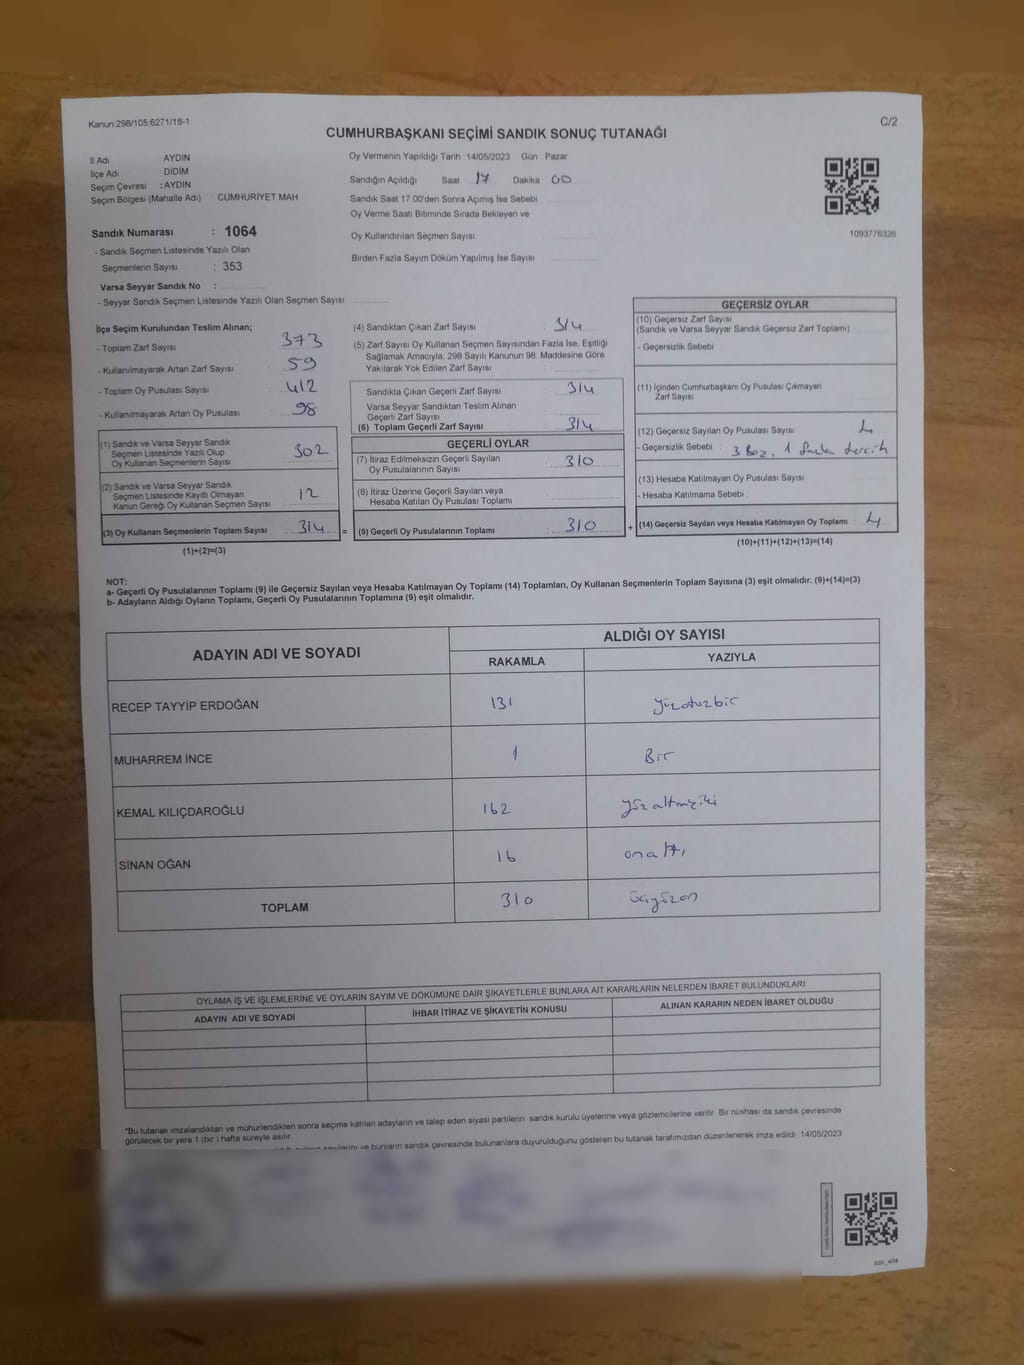 Kanun:298/105,6271/18-1
C/2
CUMHURBAŞKANI SEÇİMİ SANDIK SONUÇ TUTANAĞI
İl Adı AYDIN
İlçe Adı DİDİM
Seçim Çevresi : AYDIN
Seçim Bölgesi (Mahalle Adı) : CUMHURİYET MAH
Sandık Numarası : 1064
- Sandık Seçmen Listesinde Yazılı Olan
Seçmenlerin Sayısı : 353
Varsa Seyyar Sandık No :
- Seyyar Sandık Seçmen Listesinde Yazılı Olan Seçmen Sayısı
Oy Vermenin Yapıldığı Tarih 14/05/2023 Gün Pazar
Sandığın Açıldığı Saat 17 Dakika 00
Sandık Saat 17.00'den Sonra Açımış İse Sebebi
Oy Verme Saati Bitiminde Sırada Bekleyen ve
Oy Kullandırılan Seçmen Sayısı :
Birden Fazla Sayım Döküm Yapılmış İse Sayısı :
1093776326
İlçe Seçim Kurulundan Teslim Alınan;
- Toplam Zarf Sayısı 373
- Kullanılmayarak Artan Zarf Sayısı 59
- Toplam Oy Pusulası Sayısı 412
- Kullanılmayarak Artan Oy Pusulası 98
(1) Sandık ve Varsa Seyyar Sandık
Seçmen Listesinde Yazılı Olup
Oy Kullanan Seçmenlerin Sayısı 302
(2) Sandık ve Varsa Seyyar Sandık
Seçmen Listesinde Kayıtlı Olmayan
Kanun Gereği Oy Kullanan Seçmen Sayısı 12
(3) Oy Kullanan Seçmenlerin Toplam Sayısı : 314 =
(1)+(2)=(3)
(4) Sandıktan Çıkan Zarf Sayısı : 314
(5) Zarf Sayısı Oy Kullanan Seçmen Sayısından Fazla İse, Eşitliği
Sağlamak Amacıyla, 298 Sayılı Kanunun 98. Maddesine Göre
Yakılarak Yok Edilen Zarf Sayısı :
Sandıkta Çıkan Geçerli Zarf Sayısı : 314
Varsa Seyyar Sandıktan Teslim Alınan
Geçerli Zarf Sayısı :
(6) Toplam Geçerli Zarf Sayısı : 314
GEÇERLİ OYLAR
(7) İtiraz Edilmeksizin Geçerli Sayılan
Oy Pusulalarının Sayısı : 310
(8) İtiraz Üzerine Geçerli Sayılan veya
Hesaba Katılan Oy Pusulası Toplamı :
(9) Geçerli Oy Pusulalarının Toplamı : 310 +
GEÇERSİZ OYLAR
(10) Geçersiz Zarf Sayısı
(Sandık ve Varsa Seyyar Sandık Geçersiz Zarf Toplamı)
- Geçersizlik Sebebi :
(11) İçinden Cumhurbaşkanı Oy Pusulası Çıkmayan
Zarf Sayısı
(12) Geçersiz Sayılan Oy Pusulası Sayısı : 4
- Geçersizlik Sebebi : 3 Boz, 1 fazla tercih
(13) Hesaba Katılmayan Oy Pusulası Sayısı
- Hesaba Katılmama Sebebi :
(14) Geçersiz Sayılan veya Hesaba Katılmayan Oy Toplamı : 4
(10)+(11)+(12)+(13)=(14)
NOT:
a- Geçerli Oy Pusulalarının Toplamı (9) ile Geçersiz Sayılan veya Hesaba Katılmayan Oy Toplamı (14) Toplamları, Oy Kullanan Seçmenlerin Toplam Sayısına (3) eşit olmalıdır. (9)+(14)=(3)
b- Adayların Aldığı Oyların Toplamı, Geçerli Oy Pusulalarının Toplamına (9) eşit olmalıdır.
ADAYIN ADI VE SOYADI
ALDIĞI OY SAYISI
RAKAMLA YAZIYLA
RECEP TAYYİP ERDOĞAN 131 yüzotuzbir
MUHARREM İNCE 1 Bir
KEMAL KILIÇDAROĞLU 162 yüzaltmışiki
SİNAN OĞAN 16 onaltı
TOPLAM 310 üçyüzon
OYLAMA İŞ VE İŞLEMLERİNE VE OYLARIN SAYIM VE DÖKÜMÜNE DAİR ŞİKAYETLERLE BUNLARA AİT KARARLARIN NELERDEN İBARET BULUNDUKLARI
ADAYIN ADI VE SOYADI İHBAR İTİRAZ VE ŞİKAYETİN KONUSU ALINAN KARARIN NEDEN İBARET OLDUĞU
*Bu tutanak imzalandıktan ve mühürlendikten sonra seçime katılan adayların ve talep eden siyasi partilerin sandık kurulu üyelerine veya gözlemcilerine verilir. Bir nüshası da sandık çevresinde
görülecek bir yere 1 (bir) hafta süreyle asılır.
ve bunların sandık çevresinde bulunanlara duyurulduğunu gösteren bu tutanak tarafımızdan düzenlenerek imza edildi. 14/05/2023